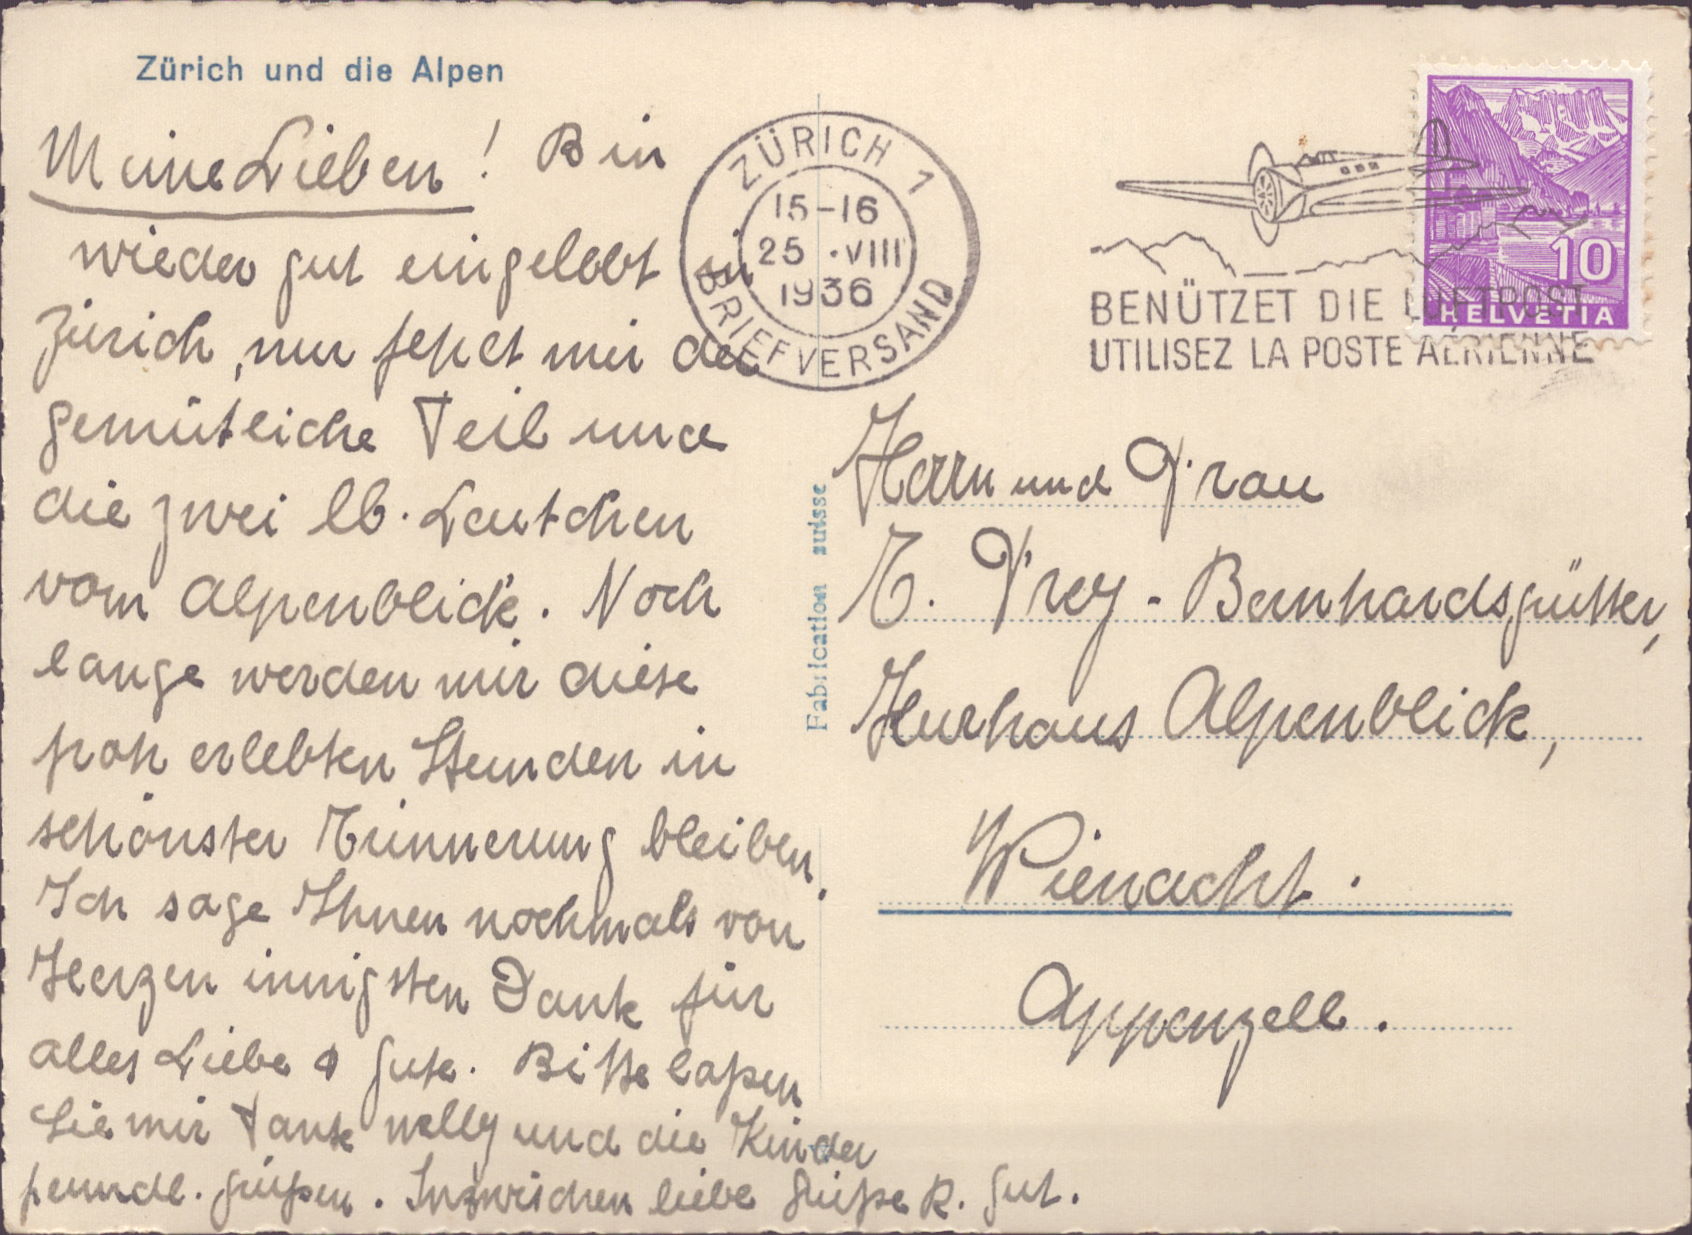 Zürich und die Alpen
Meine Lieben! Bin
wieder gut eingelebt in
Zürich, nur fehlt mir der
gemütliche Teil und
die zwei lb. Leutchen
vom Alpenblick. Noch
lange werden mir diese
froh erlebten Stunden in
schönster Erinnerung bleiben.
Ich sage Ihnen nochmals von
Herzen innigsten Dank für
alles Liebe & Gute. Bitte laßen
Sie mir Tante Nelly und die Kinder
freundl. grüßen. Inzwischen liebe Grüße R. Gut.
ZÜRICH 1
15-16
25.VIII
1936
BRIEFVERSAND
BENÜTZET DIE LUFTPOST
UTILISEZ LA POSTE AÉRIENNE
10
HELVETIA
Fabrication suisse
Herrn und Frau
E. Frey-Bernhardsgrütter,
Kurhaus Alpenblick,
Wienacht.
Appenzell.